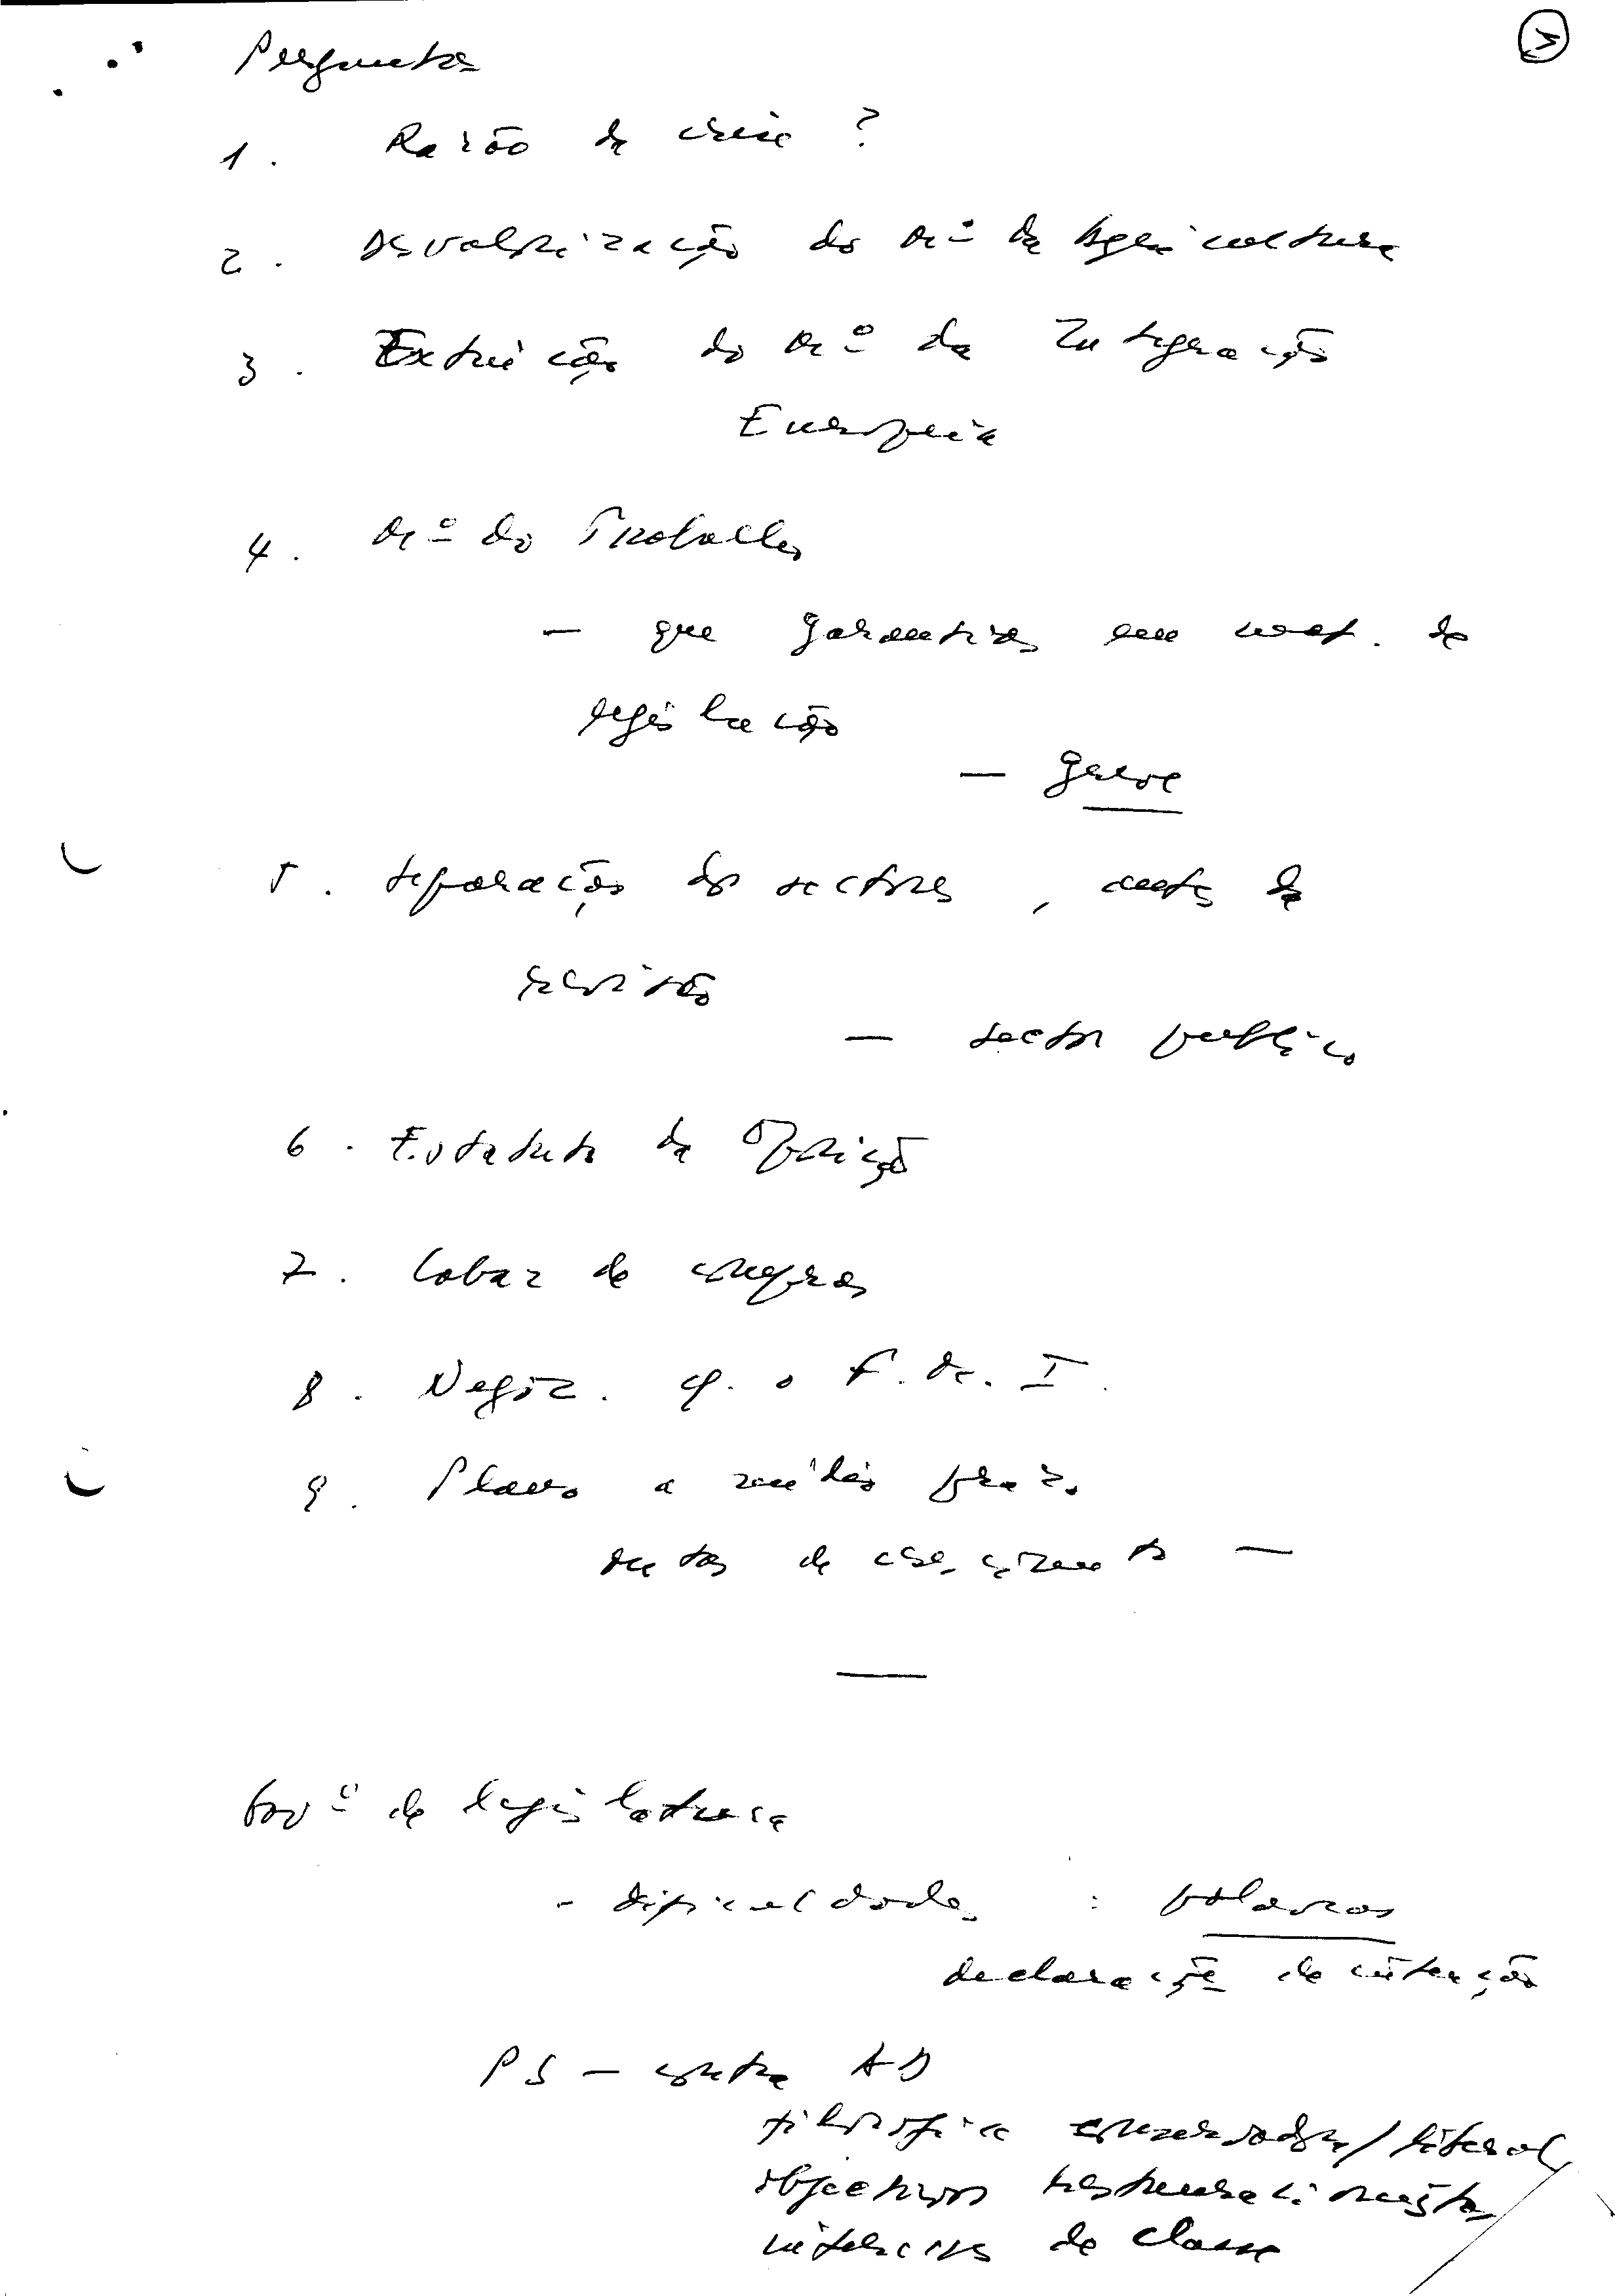 Perguntas
1. Razão da crise ?
2. Desvalorização do Mº da Agricultura
3. Extinção do Mº da Integração
Europeia
4. Mº do Trabalho
— que garantias em mat. de
legislação
— greve
5. Separação dos sectores, antes da
revisão
— sector público
6. Estatuto da Oposição
7. Cabaz de compras
8. Negoc. c/. o F.M.I.
9. Plano a médio prazo
metas de crescimento —
Govº de legislatura
- dificuldades : palavras
declaração de intenção
PS — contra AD
filosofia conservadora/liberal
objectivos restauracionistas
interesses de classe